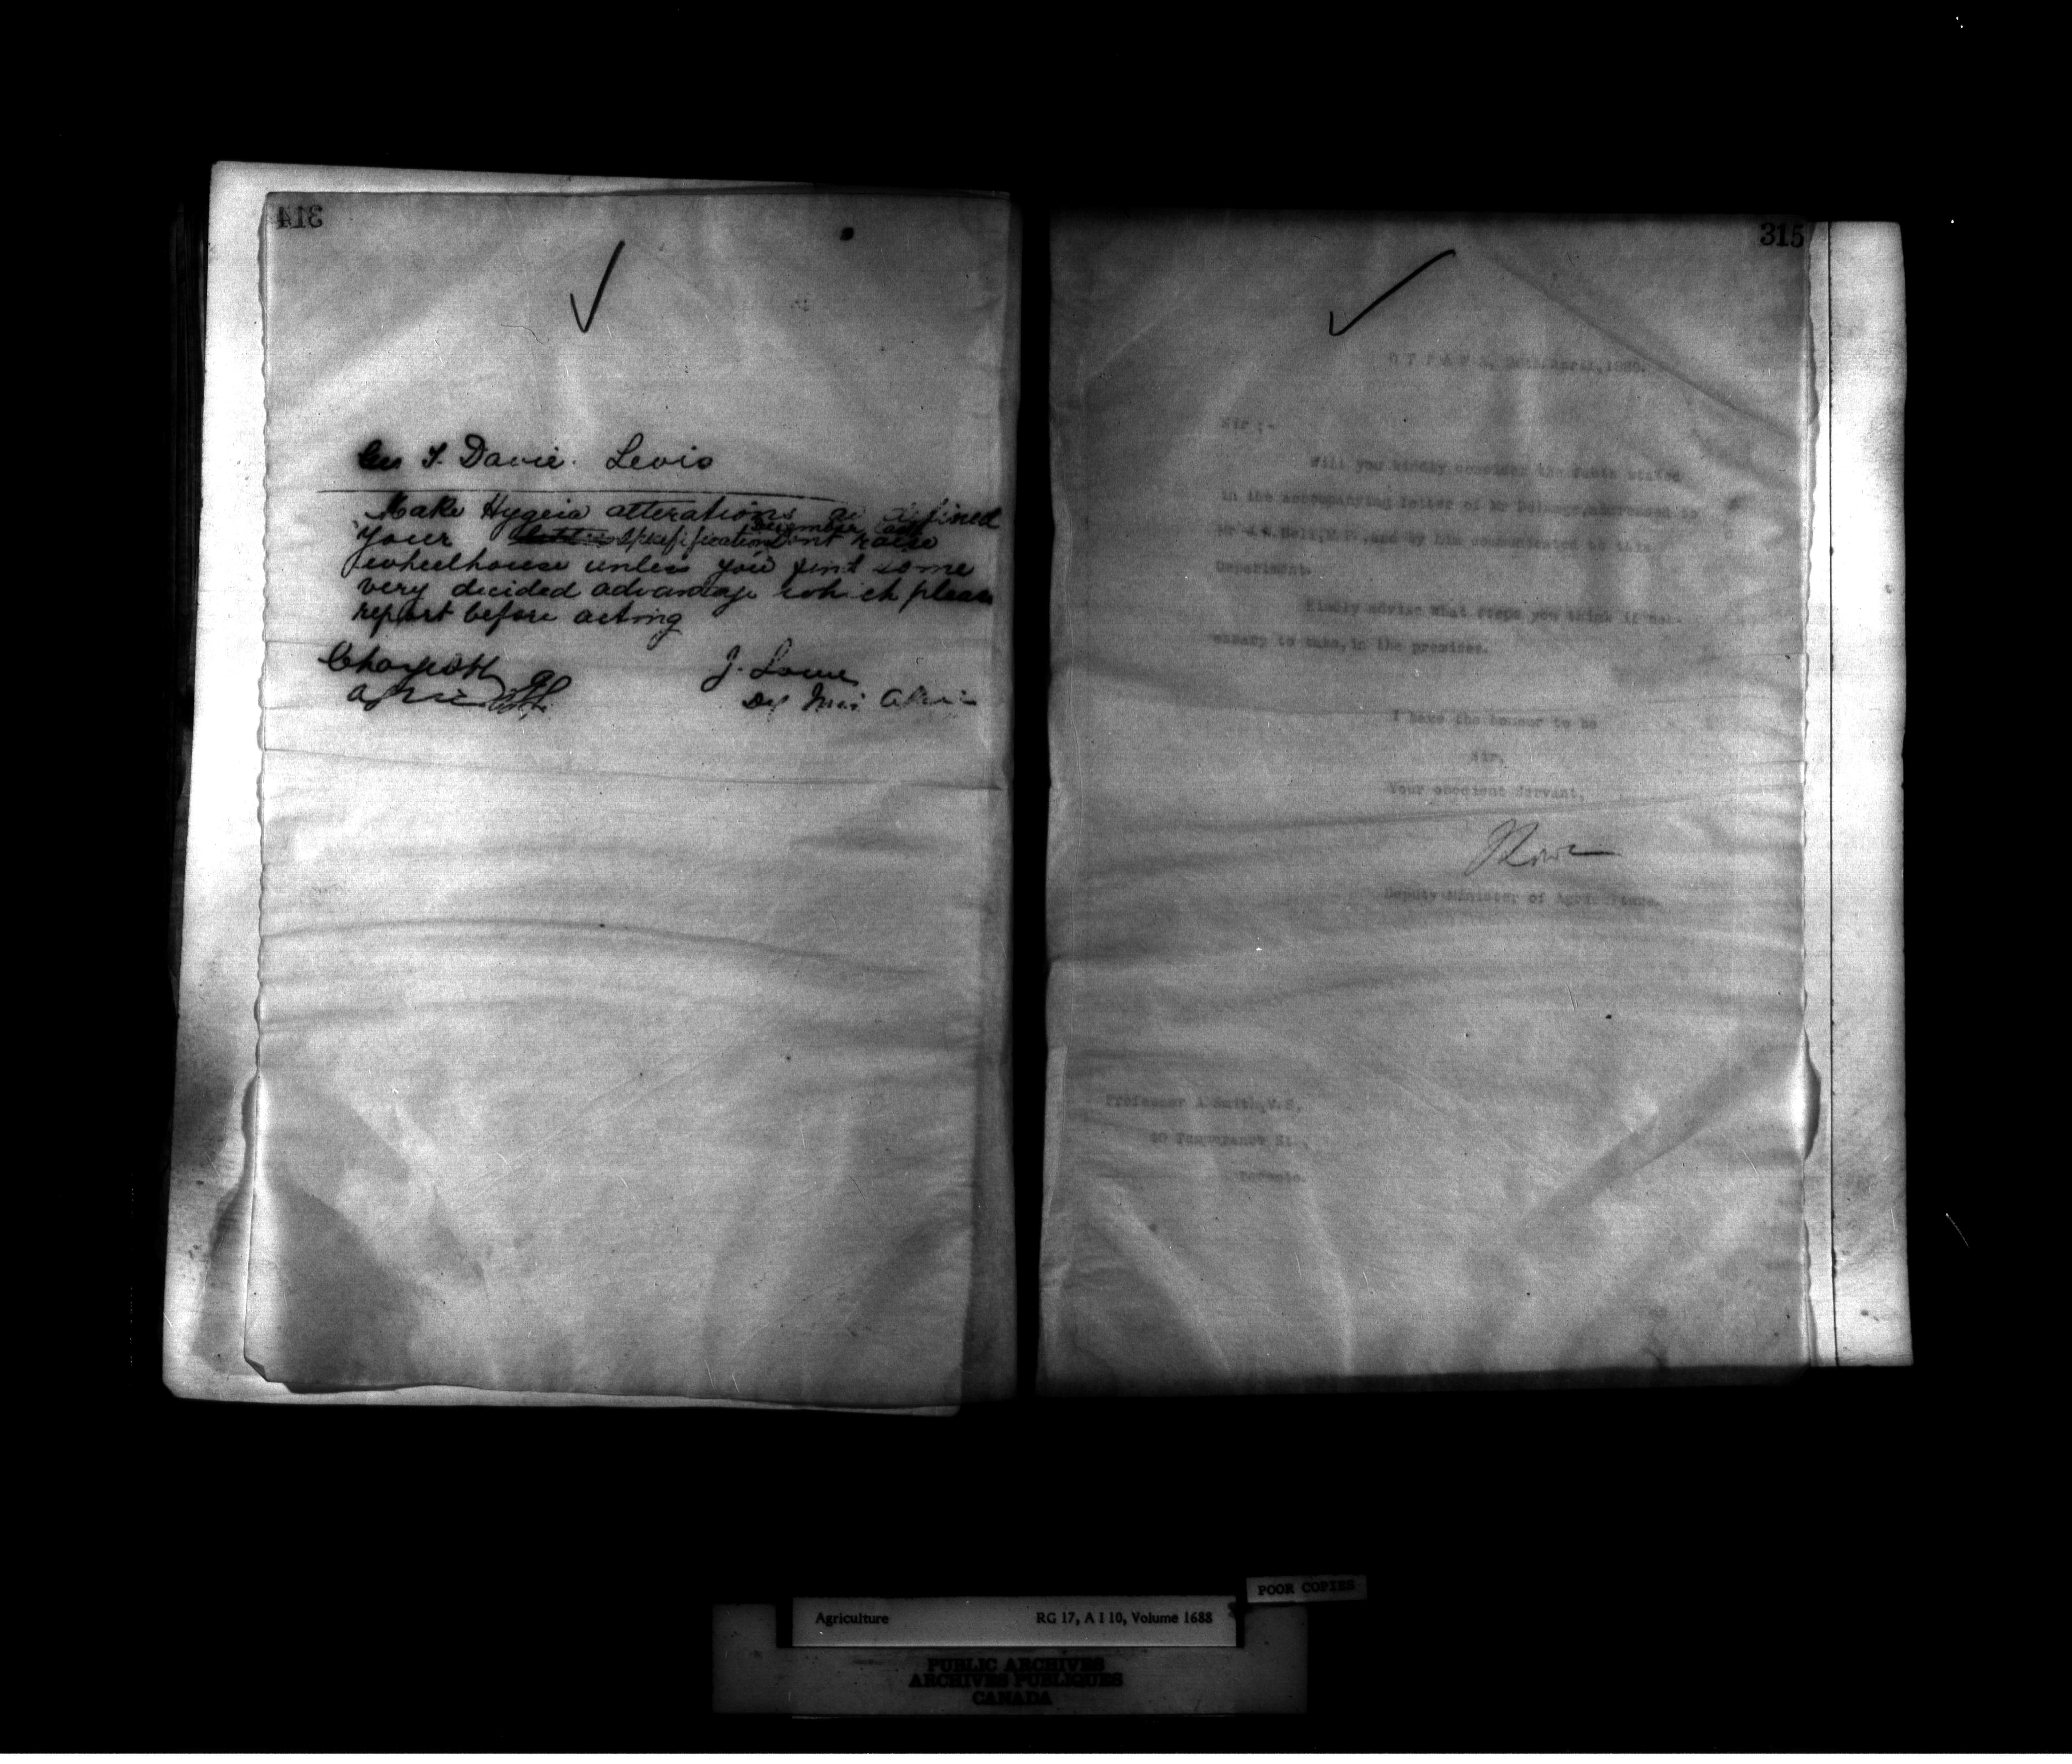 314
Geo T. Davie. Levis
Make Hygeia alterations as defined
December last
your specification Dont raise
wheelhouse unless you find some
very decided advantage which please
report before acting
Charge
J. Lowe
Dep Min Agric
315
OTTAWA, April, 1889.
Sir ;-
Will you kindly consider the facts stated
in the accompanying letter of Mr addressed to
Mr Bell, M.P., and by him communicated to this
Department.
Kindly advise what steps you think it nec-
essary to take, in the premises.
I have the honour to be
Sir,
Your obedient Servant,
J Lowe
Deputy Minister of Agriculture.
Professor A Smith, V.S.
40 Temperance St.,
Toronto.
POOR COPIES
Agriculture RG 17, A I 10, Volume 1688
PUBLIC ARCHIVES
ARCHIVES PUBLIQUES
CANADA